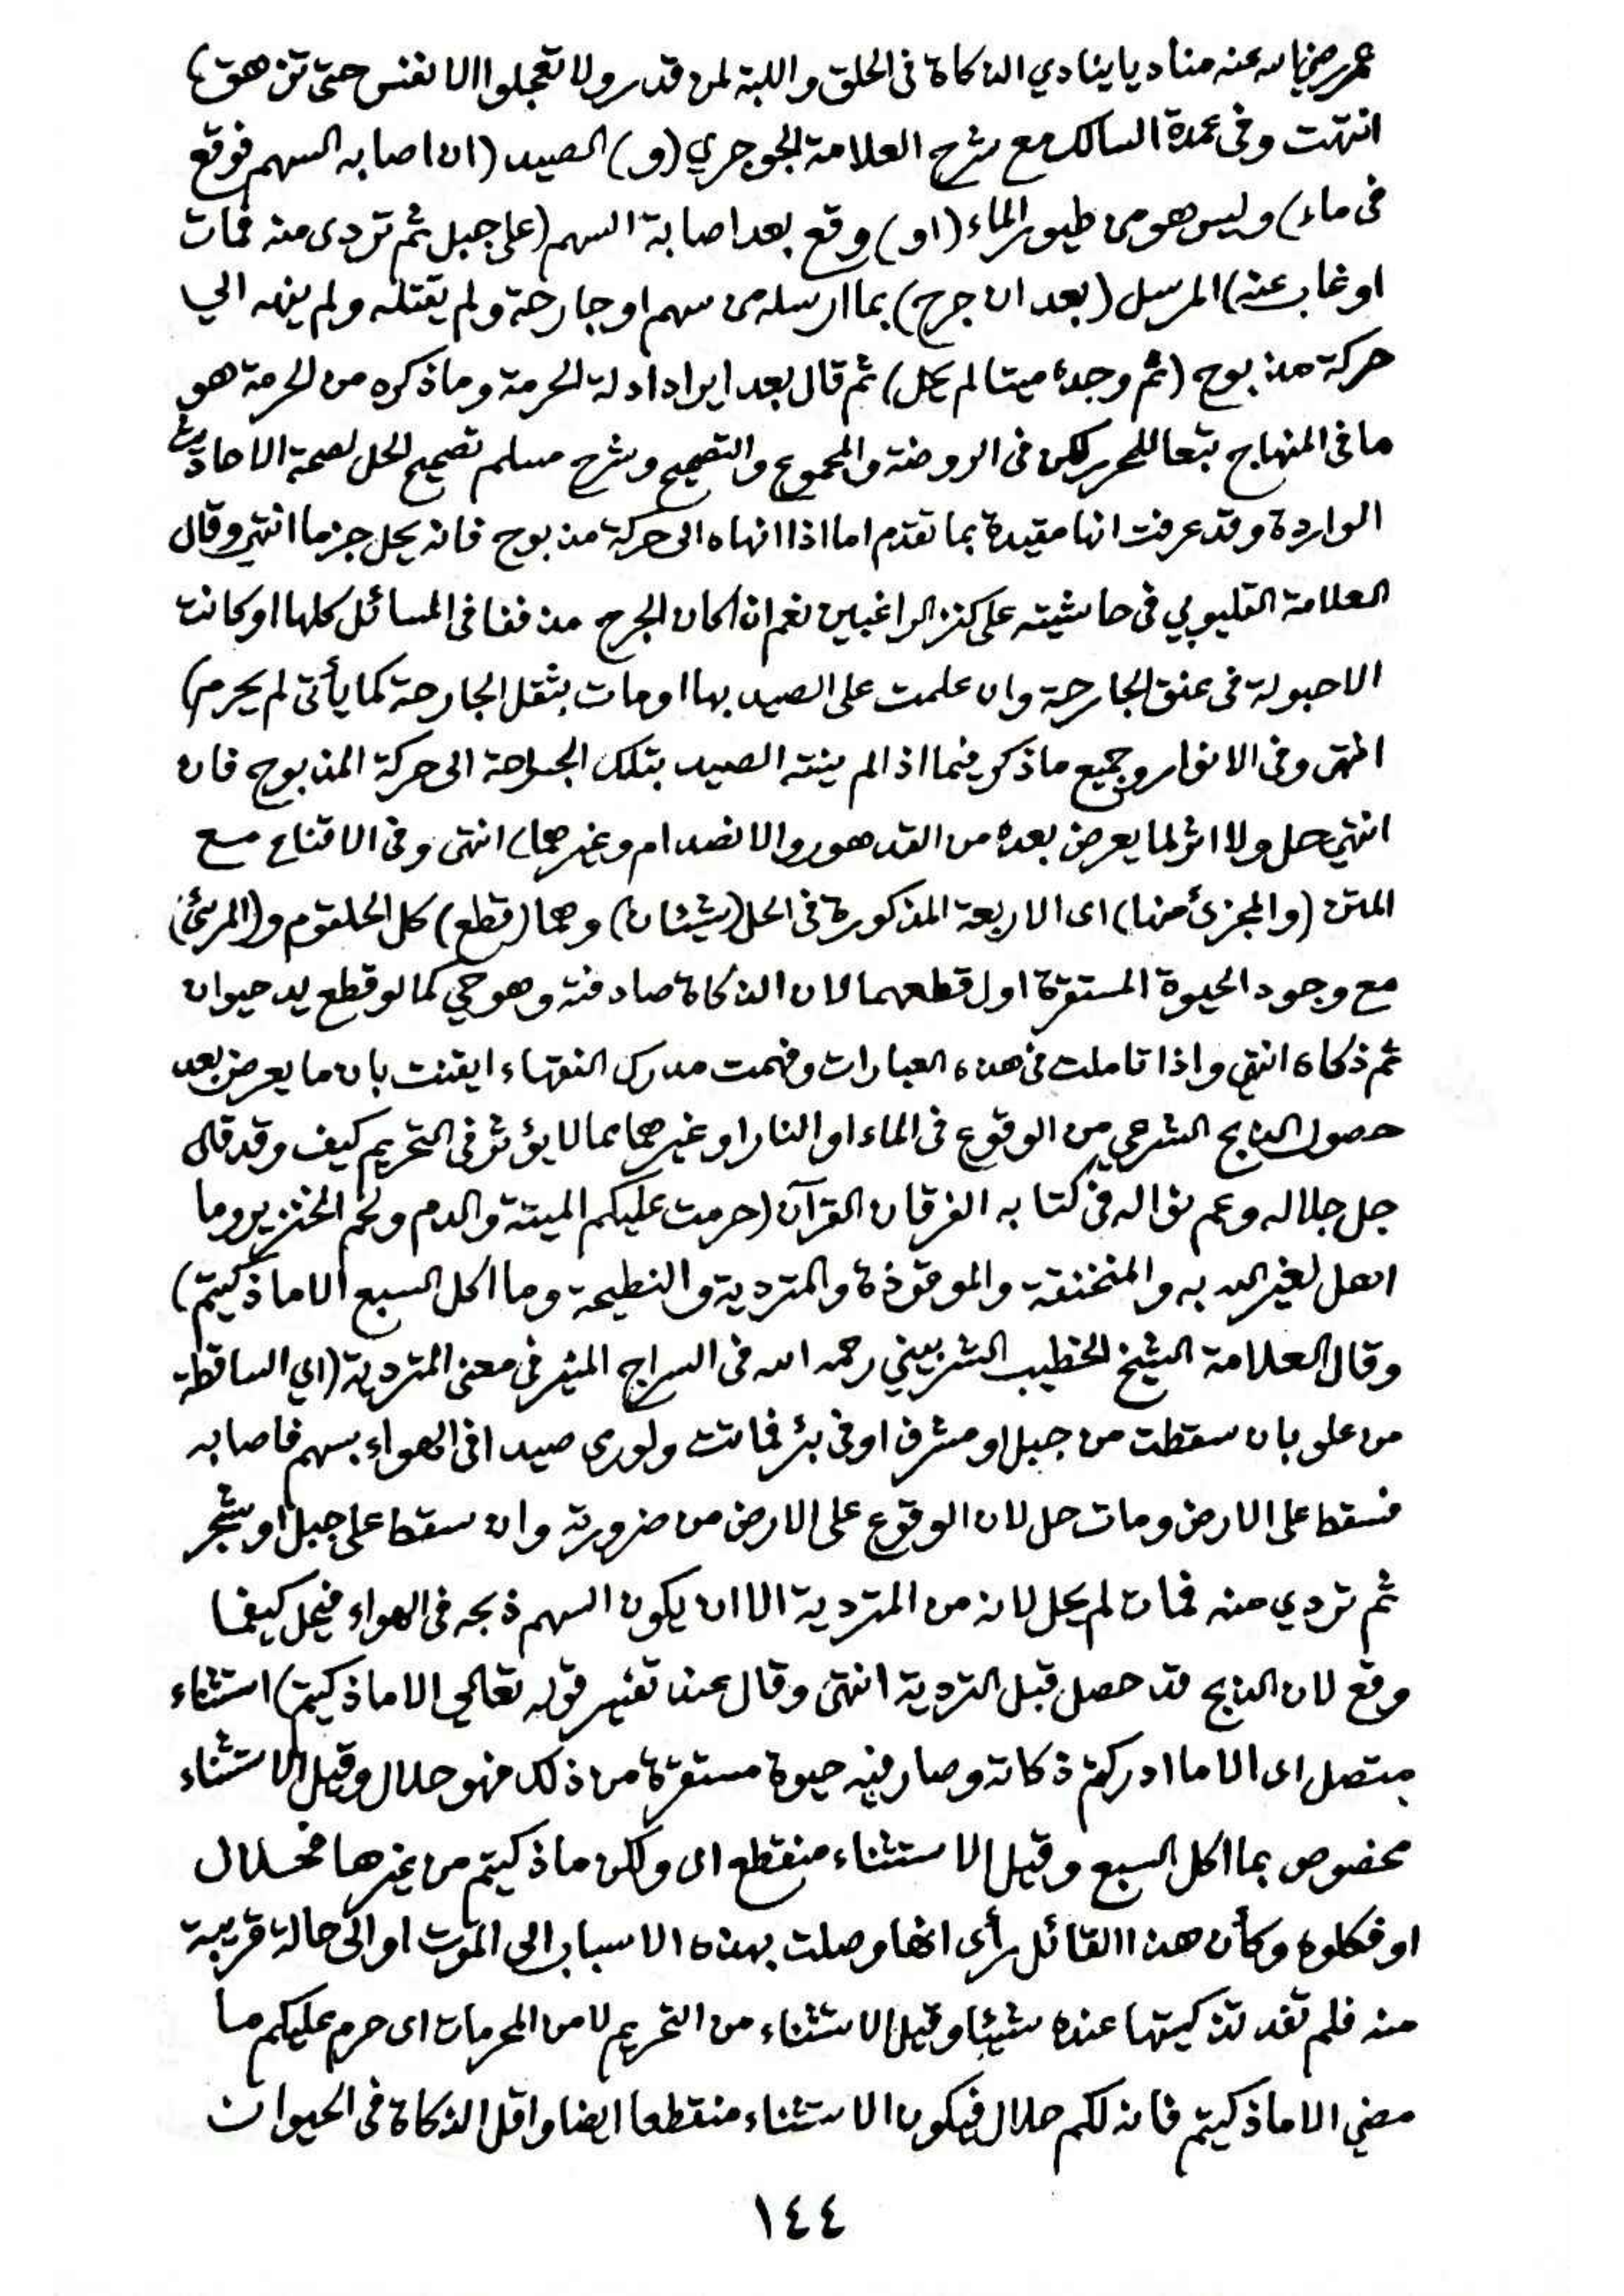 عمر رضي الله عنه مناديا ينادي الذكاة فى الحلق واللبة لمن قدر ولا تعجلوا الانفس حتى تزهق)
انتهت وفى عمدة السالك مع شرح العلامة الجوجري (و) الصيد (ان اصابه السهم فوقع
فى ماء) وليس هو من طيور الماء (او) وقع بعد اصابة السهم (على جبل ثم تردى منه فمات
او غاب عنه) المرسل (بعد ان جرح) بما ارسله من سهم او جارحة ولم يقتله ولم ينهه الي
حركة مذبوح (ثم وجده ميتا لم يحل) ثم قال بعد ايراد ادلة الحرمة وما ذكره من الحرمة هو
ما فى المنهاج تبعا للمحرر لكن فى الروضة والمجموع والتصحيح وشرح مسلم تصحيح الحل لصحة الاحاديث
الواردة وقد عرفت انها مقيدة بما تقدم اما اذا انهاه الى حركة مذبوح فانه يحل جزما انتهى وقال
العلامة القليوبي فى حاشيته على كنز الراغبين نعم ان كان الجرح مذففا فى المسائل كلها او كانت
الاحبولة فى عنق الجارحة وان علمت على الصيد بها او مات بثقل الجارحة كما يأتى لم يحرم)
انتهى وفى الانوار وجميع ما ذكر فيما اذا لم ينته الصيد بتلك الجراحة الى حركة المذبوح فان
انتهى حل ولا اثر لما يعرض بعده من التدهور والانصدام وغيرهما) انتهى وفى الاقناع مع
المتن (والمجزئ منها) اى الاربعة المذكورة فى الحل (شيئان) وهما (قطع) كل الحلقوم و(المرئ)
مع وجود الحيوة المستقرة اول قطعهما لان الذكاة صادفته وهو حي كما لو قطع يد حيوان
ثم ذكاه انتهى واذا تاملت فى هذه العبارات وفهمت مدرك الفقهاء ايقنت بان ما يعرض بعد
حصول الذبح الشرعي من الوقوع فى الماء او النار او غيرهما مما لا يؤثر فى التحريم كيف وقد قال
جل جلاله وعم نواله فى كتابه الفرقان القرآن (حرمت عليكم الميتة والدم ولحم الخنزير وما
اهل لغير الله به والمنخنقة والموقوذة والمتردية والنطيحة وما اكل السبع الا ما ذكيتم)
وقال العلامة الشيخ الخطيب الشربيني رحمه الله فى السراج المنير فى معنى المتردية (اي الساقطة
من علو بان سقطت من جبل او مشرف او فى بئر فماتت ولو رمى صيدا فى الهواء بسهم فاصابه
فسقط على الارض ومات حل لان الوقوع على الارض من ضرورته وان سقط على جبل او شجر
ثم تردي منه فمات لم يحل لانه من المتردية الا ان يكون السهم ذبحه فى الهواء فيحل كيفما
وقع لان الذبح قد حصل قبل التردية انتهى وقال عند تفسير قوله تعالي الا ما ذكيتم) استثناء
متصل اى الا ما ادركتم ذكاته وصار فيه حيوة مستقرة من ذلك فهو حلال وقيل الاستثناء
مخصوص بما اكل السبع وقيل الاستثناء منقطع اى ولكن ما ذكيتم من غيرها فحلال
او فكلوه وكأن هذا القائل رأى انها وصلت بهذه الاسباب الى الموت او الى حالة قريبة
منه فلم تفد تذكيتها عنده شيئا وقيل الاستثناء من التحريم لا من المحرمات اى حرم عليكم ما
مضي الا ما ذكيتم فانه لكم حلال فيكون الاستثناء منقطعا ايضا واقل الذكاة فى الحيوان
١٤٤